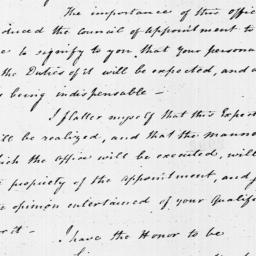 The importance of this offic
duced the council of Appointment to
e to signify to you that your persona
the Duties of it will be expected, and a
s being indispensable —
I flatter myself that this Expect
ill be realized, and that the manner
hich the office will be executed, will
e propriety of the appointment, and j
e opinion entertained of your Qualifi
r it —
I have the Honor to be